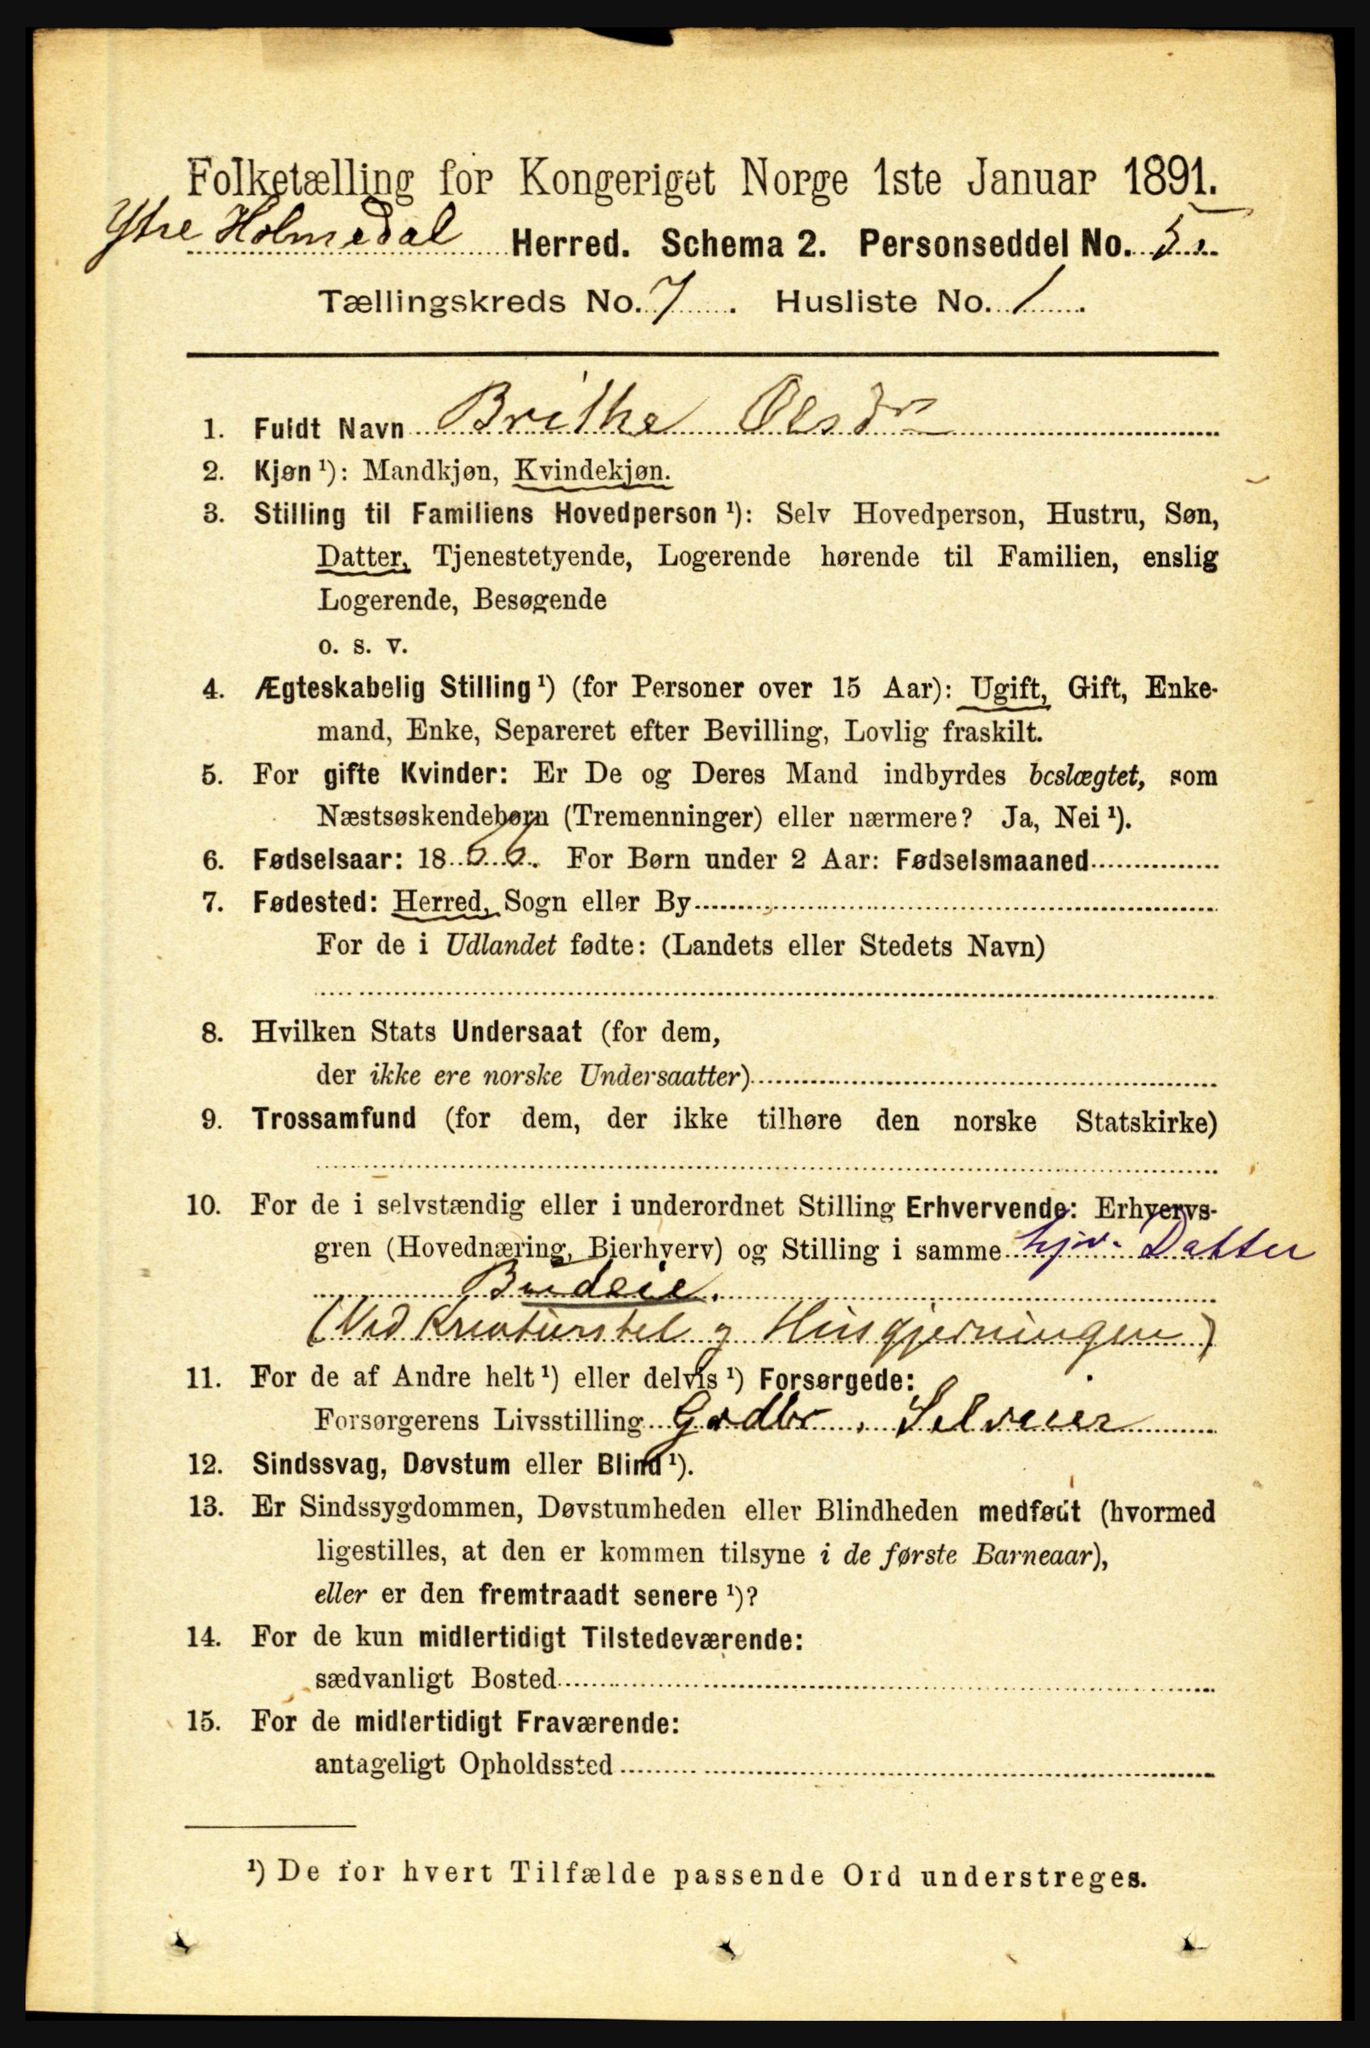 Folketælling for Kongeriget Norge 1ste Januar 1891.
Ytre Holmedal Herred. Schema 2. Personseddel No. 5.
Tællingskreds No. 7. Husliste No. 1.
1. Fuldt Navn Brithe Olsdr
2. Kjøn ¹): Mandkjøn, Kvindekjøn.
3. Stilling til Familiens Hovedperson ¹): Selv Hovedperson, Hustru, Søn,
Datter, Tjenestetyende, Logerende hørende til Familien, enslig
Logerende, Besøgende
o. s. v.
4. Ægteskabelig Stilling ¹) (for Personer over 15 Aar): Ugift, Gift, Enke-
mand, Enke, Separeret efter Bevilling, Lovlig fraskilt.
5. For gifte Kvinder: Er De og Deres Mand indbyrdes beslægtet, som
Næstsøskendebørn (Tremenninger) eller nærmere? Ja, Nei ¹).
6. Fødselsaar: 18 For Børn under 2 Aar: Fødselsmaaned
7. Fødested: Herred, Sogn eller By
For de i Udlandet fødte: (Landets eller Stedets Navn)
8. Hvilken Stats Undersaat (for dem,
der ikke ere norske Undersaatter)
9. Trossamfund (for dem, der ikke tilhøre den norske Statskirke)
10. For de i selvstændig eller i underordnet Stilling Erhvervende: Erhvervs-
gren (Hovednæring, Bierhverv) og Stilling i samme hjv. Datter
Budeie.
(Ved Kreaturstel og Husgjerningen)
11. For de af Andre helt ¹) eller delvis ¹) Forsørgede:
Forsørgerens Livsstilling Grdbr. Selveier
12. Sindssvag, Døvstum eller Blind ¹).
13. Er Sindssygdommen, Døvstumheden eller Blindheden medfødt (hvormed
ligestilles, at den er kommen tilsyne i de første Barneaar),
eller er den fremtraadt senere ¹)?
14. For de kun midlertidigt Tilstedeværende:
sædvanligt Bosted
15. For de midlertidigt Fraværende:
antageligt Opholdssted
¹) De for hvert Tilfælde passende Ord understreges.